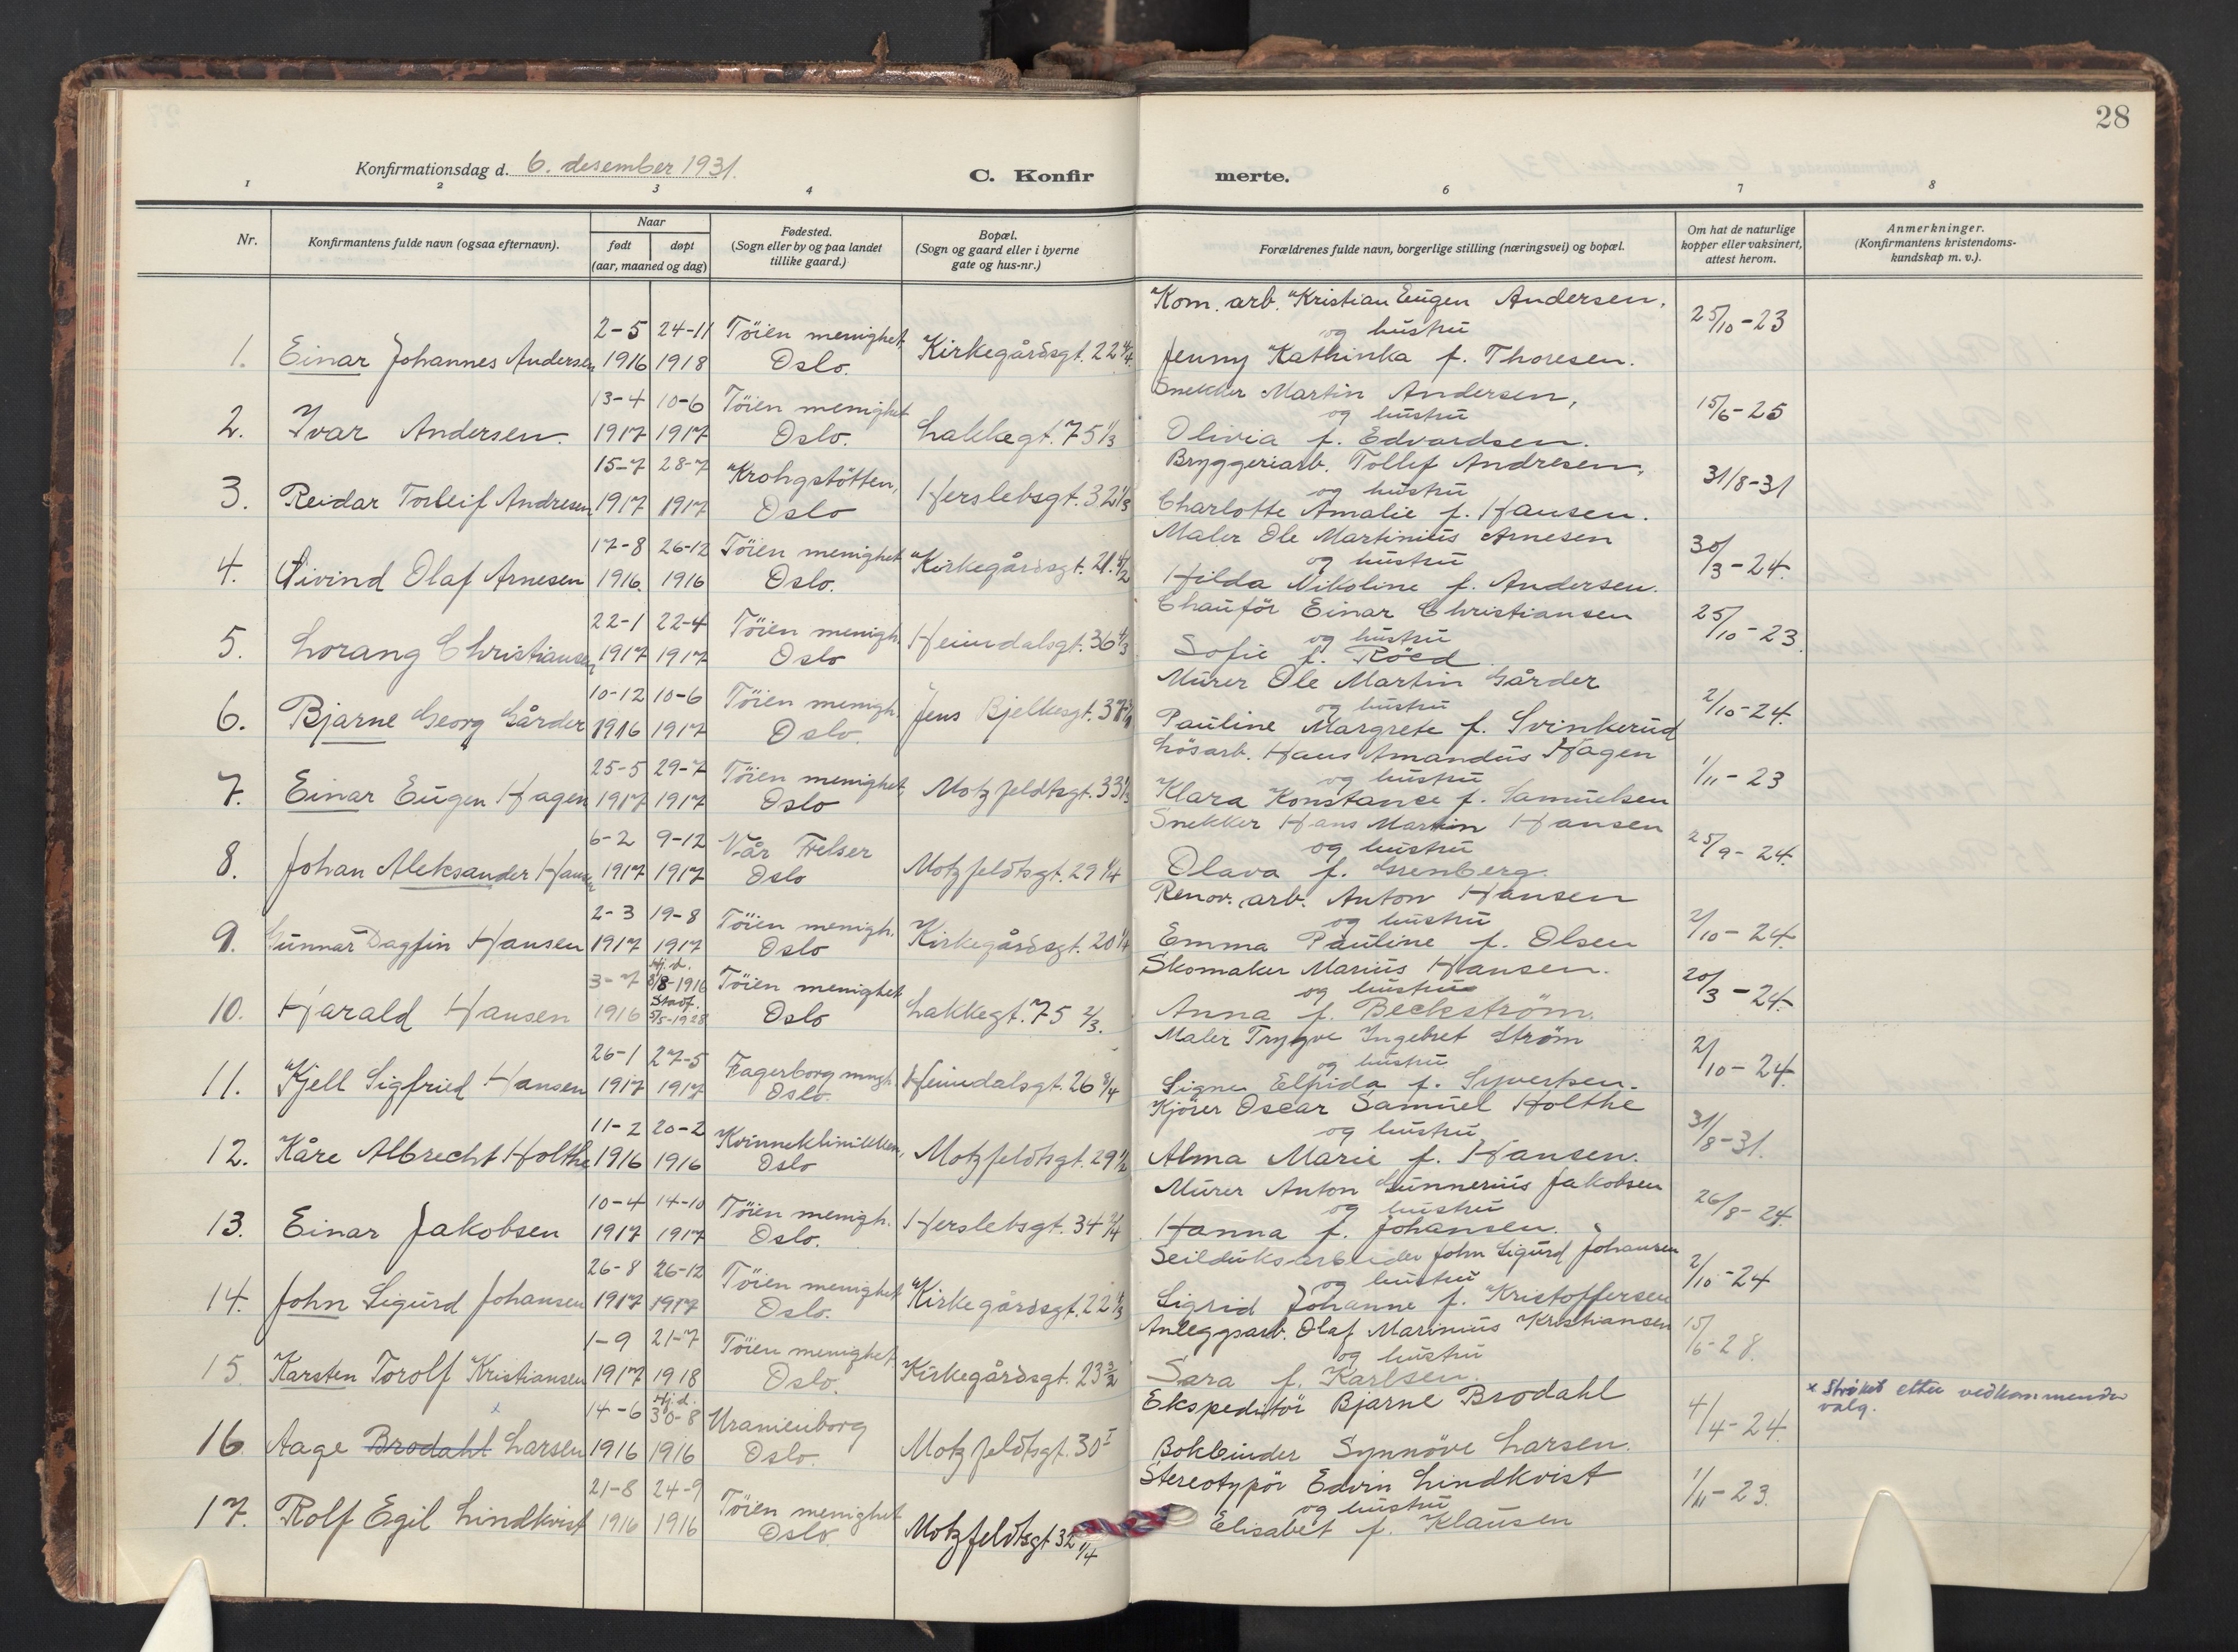 28
Konfirmationsdag d. 6. desember 1931.
C. Konfir merte.
1 2 3 4 6 7 8
Nr.
Konfirmantens fulde navn (ogsaa efternavn).
Naar
født døpt
(aar, maaned og dag)
Fødested.
(Sogn eller by og paa landet
tillike gaard.)
Bopæl.
(Sogn og gaard eller i byerne
gate og hus-nr.)
Forældrenes fulde navn, borgerlige stilling (næringsvei) og bopæl.
Om hat de naturlige
kopper eller vaksinert,
attest herom.
Anmerkninger.
(Konfirmantens kristendoms-
kundskap m. v.).
Kom. arb. Kristian Eugen Andersen,
2-5 24-11 Töien menighet, og hustru 25/10-23
1. Einar Johannes Andersen 1916 1918 Oslo. Kirkegårdsgt. 22 Jenny Kathinka f. Thoresen.
13-4 10-6 Töien menighet Snekker Martin Andersen,
og hustru 15/6-25
2. Ivar Andersen. 1917 1917 Oslo. Lakkegt. 75 1/3 Olivia f. Edvardsen.
15-7 28-7 Krohgstötten, Bryggeriarb. Tollef Andresen,
og hustru 31/8-31
3. Reidar Torleif Andresen 1917 1917 Oslo Herslebsgt. 32 1/3 Charlotte Amalie f. Hansen.
17-8 26-12 Töien menighet Maler Ole Martinius Arnesen
og hustru 30/3-24.
4. Öivind Olaf Arnesen 1916. 1916 Oslo. Kirkegårdsgt. 21. Hilda Nikoline f. Andersen.
22-1 22-4 Töien menigh. Chauför Einar Christiansen
og hustru 25/10-23.
5. Lorang Christiansen 1917 1917 Oslo Heimdalsgt. 36 4/3 Sofie f. Röed.
10-12 10-6 Töien menigh. Murer Ole Martin Gårder
og hustru 2/10-24.
6. Bjarne Georg Gårder 1916 1917 Oslo. Jens Bjelkesgt. Pauline Margrete f. Svinkerud
25-5 29-7 Töien menighet, Lösarb. Hans Amandus Hagen
og hustru 1/11-23
7. Einar Eugen Hagen 1917 1917 Oslo Motzfeldtsgt. 33 1/3 Klara Konstance f. Samuelsen
6-2 9-12 Vår Frelser Snekker Hans Martin Hansen
og hustru 25/9-24.
8. Johan Aleksander Hansen 1917 1917 Oslo Motzfeldtsgt. 29 1/4 Olava f. Grenberg.
2-3 19-8 Töien menigh. Renov. arb. Anton Hansen
og hustru 2/10-24.
9. Gunnar Dagfin Hansen 1917 1917 Oslo Kirkegårdsgt. 20 1/4 Emma Pauline f. Olsen
Hj. d.
3-7 8/8-1916 Töien menighet Skomaker Marius Hansen.
Stadf. og hustru 20/3-24.
10. Harald Hansen 1916 5/5-1928 Oslo Lakkegt. 75 2/3. Anna f. Beckström.
26-1 27-5 Fagerborg mngh. Maler Trygve Ingebret Ström
og hustru 2/10-24.
11. Kjell Sigfried Hansen 1917 1917 Oslo. Heimdalsgt. 26 Signe Elfrida f. Syvertsen.
11-2 20-2 Kvinneklinikken, Kjörer Oscar Samuel Holthe
og hustru 31/8-31.
12. Kåre Albrecht Holthe 1916 1916 Oslo Motzfeldtsgt. 29 1/2 Alma Marie f. Hansen.
10-4 14-10 Töien menigh. Murer Anton Gunnerius Jakobsen
og hustru 26/8-24.
13. Einar Jakobsen 1917 1917 Oslo. Herslebsgt. 34 Hanna f. Johansen.
26-8 26-12 Töien menighet Seilduksarbeider John Sigurd Johansen
og hustru 2/10-24
14. John Sigurd Johansen 1917 1917 Oslo. Kirkegårdsgt. 22 Sigrid Johanne f. Kristoffersen
1-9 21-7 Töien menighet Anleggsarb. Olaf Marinius Kristiansen
og hustru 15/6-28.
15. Karsten Torolf Kristiansen 1917 1918 Oslo. Kirkegårdsgt. 23 3/2 Sara f. Karlsen.
Hj. d.
14-6 30-8 Uranienborg Ekspeditör Bjarne Brodahl 4/4-24. x Strøket etter vedkommendes
valg.
x
16. Aage Brodahl Larsen 1916 1916 Oslo. Motzfeldtsgt. 30 I Bokbinder Synnöve Larsen.
21-8 24-9 Töien menighet Stereotypör Edvin Lindkvist
og hustru 1/11-23.
17. Rolf Egil Lindkvist 1916 1916 Oslo. Motzfeldtsgt. 32 1/4 Elisabet f. Klausen